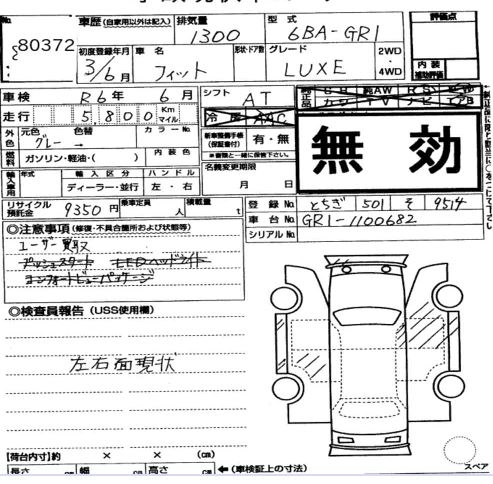 No.
80372
車歴 (自家用以外は記入)
排気量
1300
型式
6BA-GR1
評価点
初度登録年月
3/6月
車名
フィット
形状・ドア数
グレード
LUXE
2WD
・
4WD
内装
補助評価
車検
R6年 6月
シフト
AT
純正品
SR
AW
RS
カワ
TV
ナビ
走行
5,800
Km
マイル
冷房
AAC
外色
元色
グレー
色替
→
カラーNo.
新車整備手帳
(保証書付)
有・無
※書類と一緒に保管して下さい。
無効
燃料
ガソリン・軽油・( )
内装色
名義変更期限
月 日
輸入車用
年式
輸入区分
ディーラー・並行
ハンドル
左・右
リサイクル
預託金
9350円
乗車定員
人
積載量
t
登録No.
とちぎ 501 そ 9514
車台No.
GR1-1100682
シリアルNo.
◎注意事項(修復・不具合箇所および状態等)
ユーザー買取
プッシュスタート LEDヘッドライト
コンフォートビューパッケージ
◎検査員報告 (USS使用欄)
左右面現状
【荷台内寸】約 × × (cm)
長さ
cm
幅
cm
高さ
cm
←(車検証上の寸法)
スペア